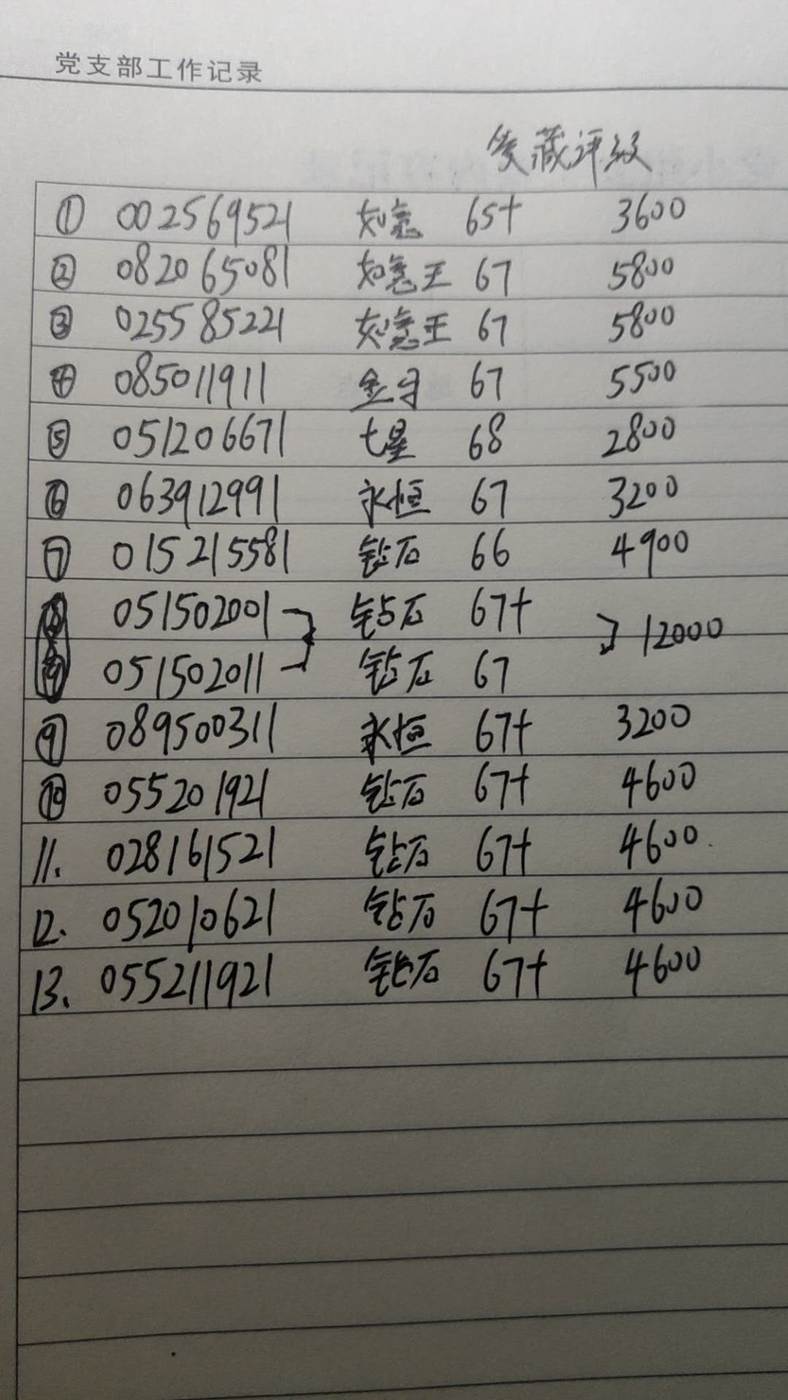 党支部工作记录
爱藏评级
① 002569521 如意 65+ 3600
② 082065081 如意王 67 5800
③ 025585221 如意王 67 5800
④ 085011911 金守 67 5500
⑤ 051206671 七星 68 2800
⑥ 063912991 永恒 67 3200
⑦ 015215581 钻石 66 4900
⑧ 051502001 钻石 67+
051502011 钻石 67 12000
⑨ 089500311 永恒 67+ 3200
⑩ 055201921 钻石 67+ 4600
11. 028161521 钻石 67+ 4600
12. 052010621 钻石 67+ 4600
13. 055211921 钻石 67+ 4600